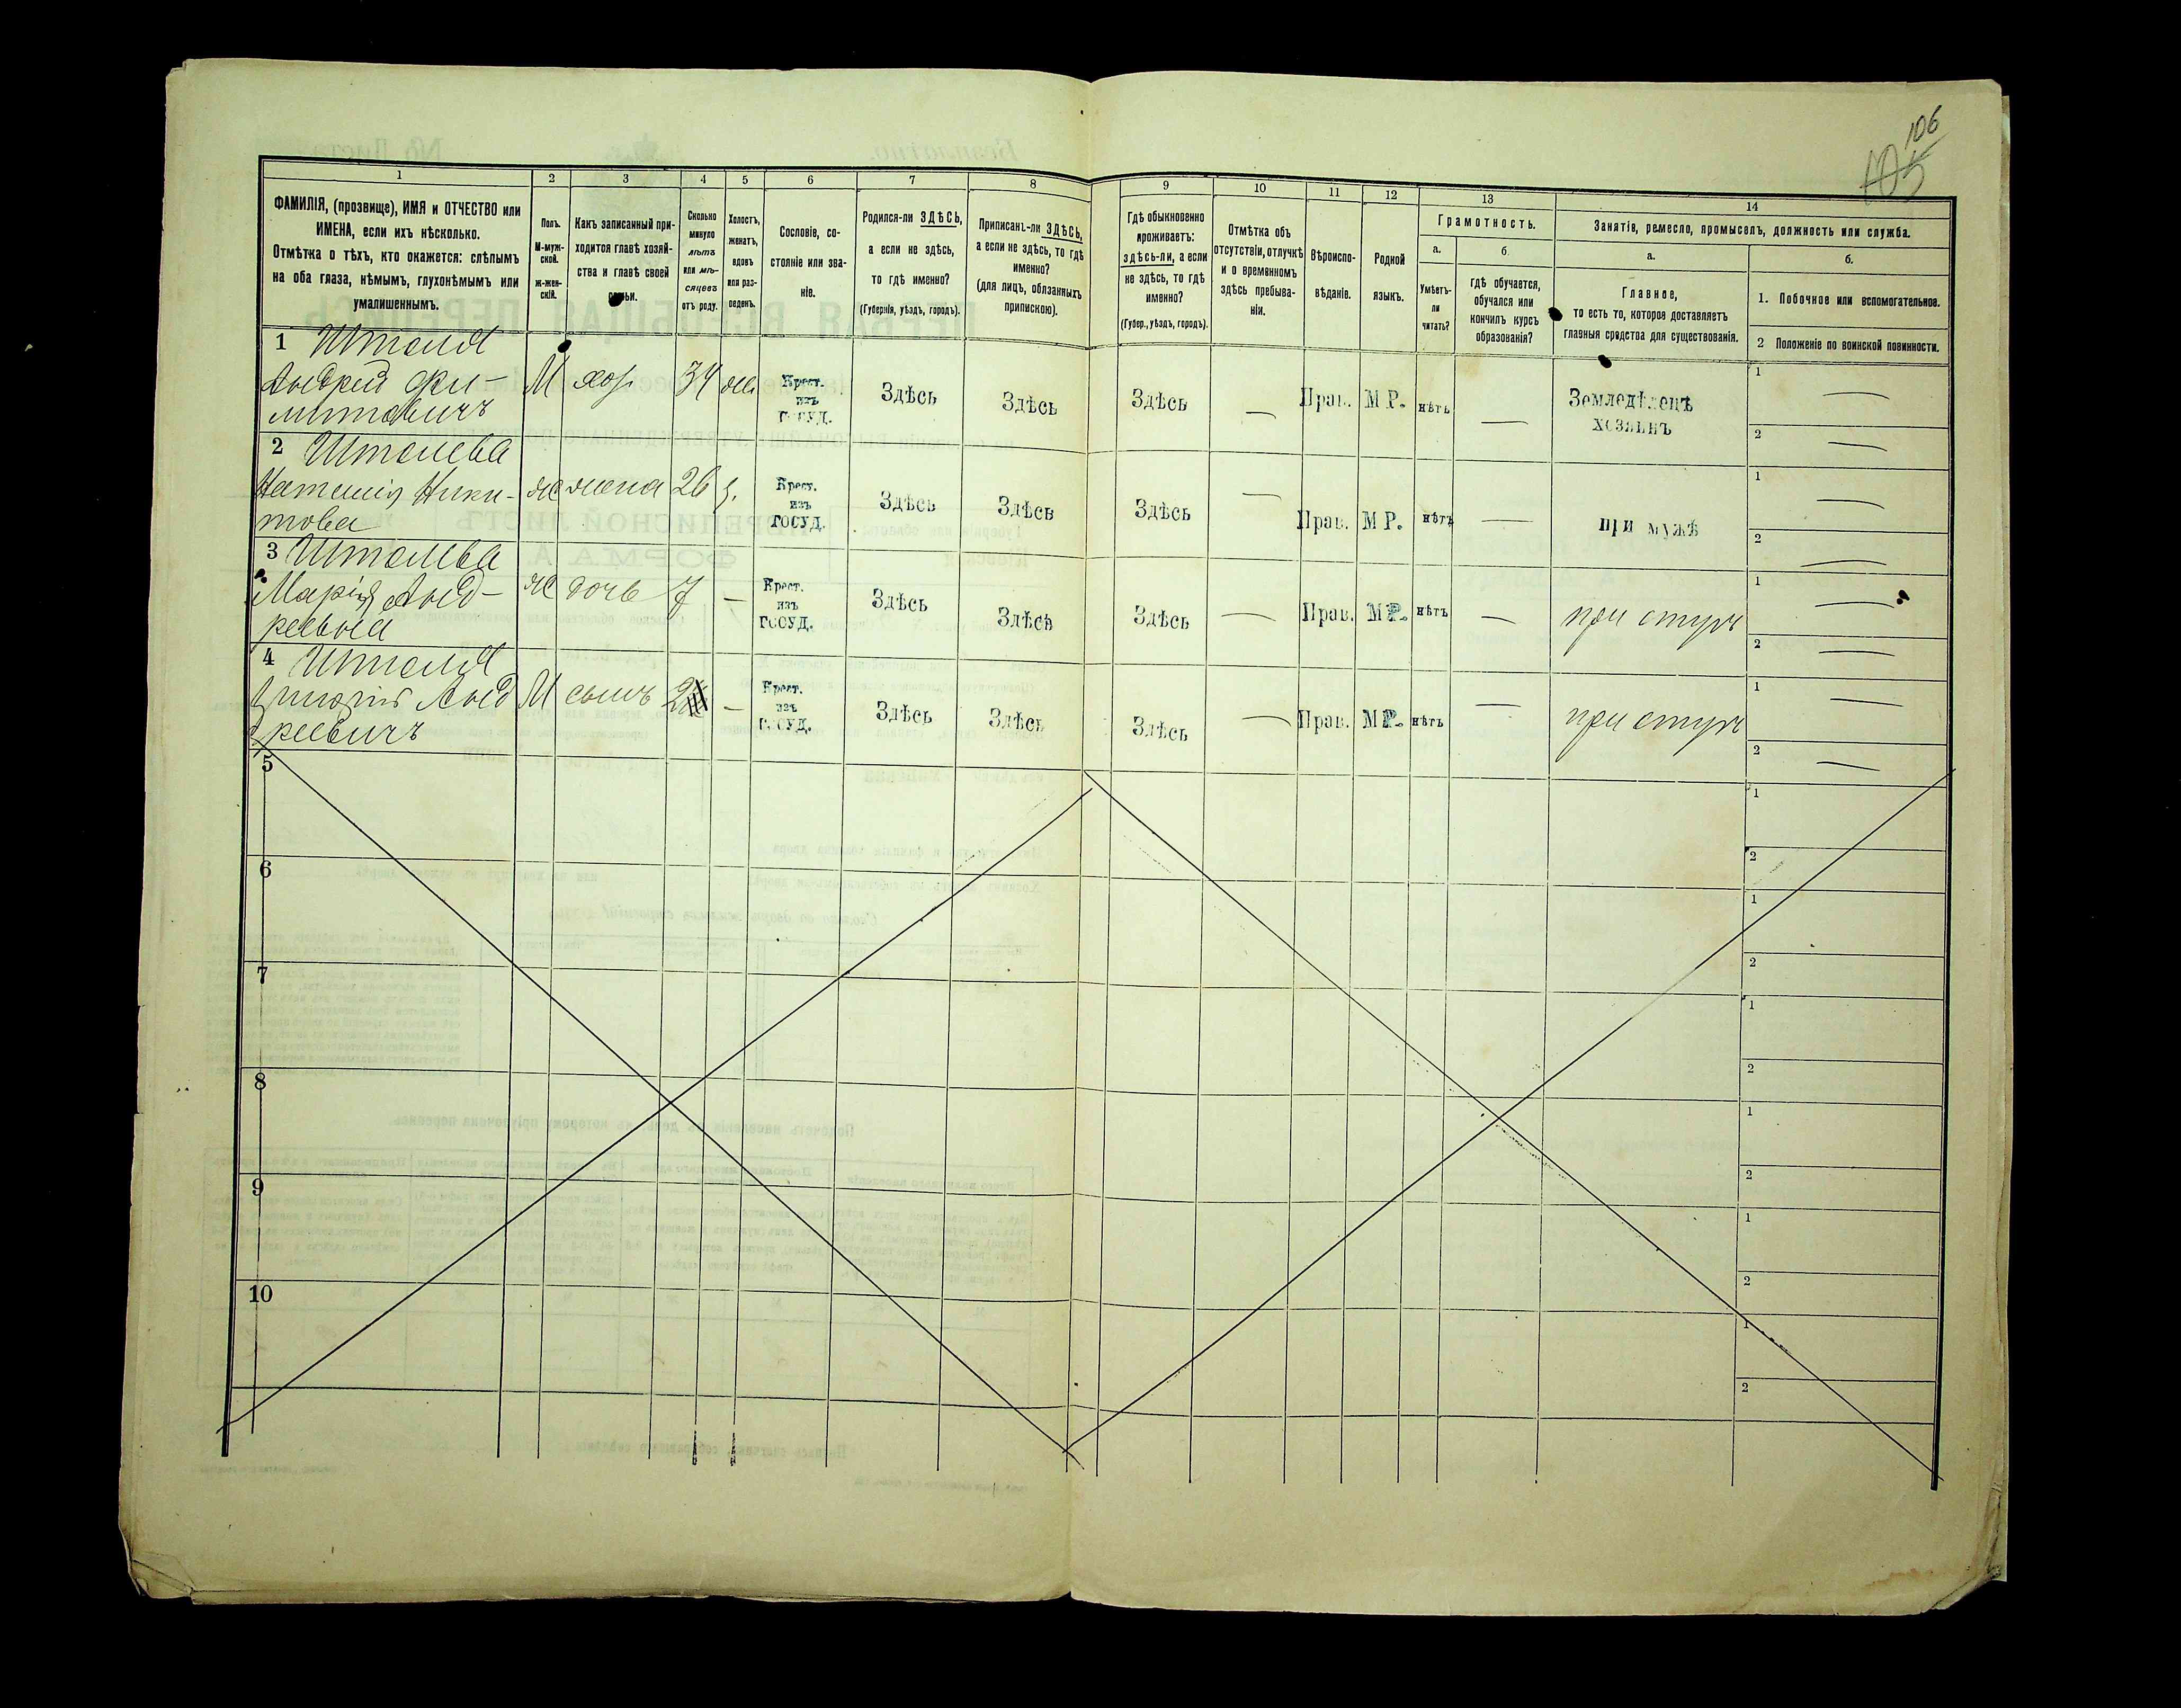 106
105
1
2
3
4
5
6
7
8
9
10
11
12
13
14
ФАМИЛІЯ, (прозвище), ИМЯ и ОТЧЕСТВО или
ИМЕНА, если ихъ нѣсколько.
Отмѣтка о тѣхъ, кто окажется: слѣпымъ
на оба глаза, нѣмымъ, глухонѣмымъ или
умалишеннымъ.
Полъ.
М-муж-
ской.
ж-жен-
скій.
Какъ записанный при-
ходится главѣ хозяй-
ства и главѣ своей
семьи.
Сколько
минуло
лѣтъ
или мѣ-
сяцевъ
отъ роду.
Холостъ,
женатъ,
вдовъ
или раз-
веденъ.
Сословіе, со-
стояніе или зва-
ніе.
Родился-ли ЗДѢСЬ,
а если не здѣсь,
то гдѣ именно?
(Губернія, уѣздъ, городъ).
Приписанъ-ли ЗДѢСЬ,
а если не здѣсь, то гдѣ
именно?
(для лицъ, обязанныхъ
припискою).
Гдѣ обыкновенно
проживаетъ:
здѣсь-ли, а если
не здѣсь, то гдѣ
именно?
(Губер., уѣздъ, городъ).
Отмѣтка объ
отсутствіи, отлучкѣ
и о временномъ
здѣсь пребыва-
ніи.
Вѣроиспо-
вѣданіе.
Родной
языкъ.
Грамотность.
а.
Умѣетъ-
ли
читать?
б.
гдѣ обучается,
обучался или
кончилъ курсъ
образованія?
Занятіе, ремесло, промыселъ, должность или служба.
а.
Главное,
то есть то, которое доставляетъ
главныя средства для существованія.
б.
1. Побочное или вспомогательное.
2 Положеніе по воинской повинности.
1
Андрей Фи-
М хоз. 34 Крест.
изъ
ГОСУД.
Здѣсь Здѣсь Здѣсь — Прав. М Р. нѣтъ — Земледѣлецъ
хозяинъ
1 —
2 —
2
Наталія Ники-
това
ж жена 26 Крест.
изъ
ГОСУД.
Здѣсь Здѣсь Здѣсь — Прав. М Р. нѣтъ — при мужѣ
1 —
2 —
3
Марія Анд-
реевна
ж дочь 7 — Крест.
изъ
ГОСУД.
Здѣсь Здѣсь Здѣсь — Прав. М Р. нѣтъ — при отцѣ
1 —
2 —
4
Григорій Анд
реевичъ
М сынъ 2 — Крест.
изъ
ГОСУД.
Здѣсь Здѣсь Здѣсь — Прав. М Р. нѣтъ — при отцѣ
1 —
2 —
5
1
2
6
1
2
7
1
2
8
1
2
9
1
2
10
1
2